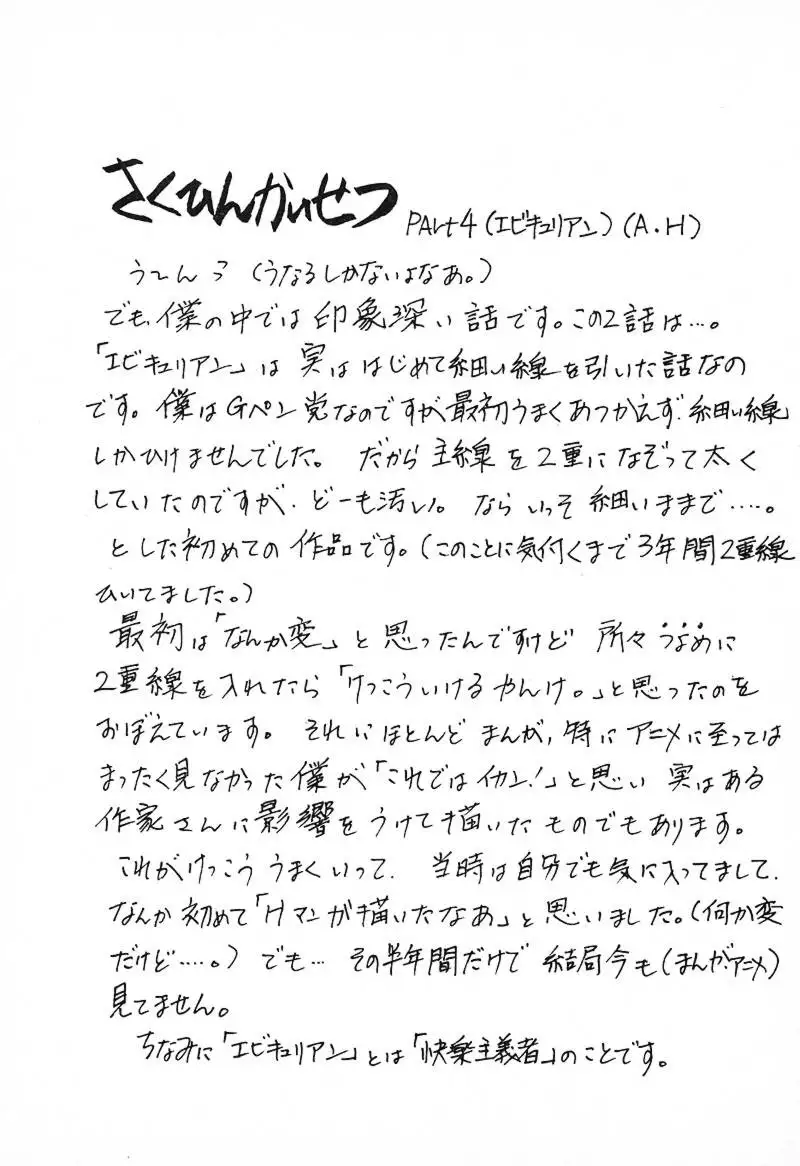 さくひんかいせつ PArt4(エピキュリアン)(A.H)
う〜んっ(うなるしかないよなあ。)
でも、僕の中では印象深い話です。この2話は…。
「エピキュリアン」は実ははじめて細い線を引いた話なの
です。僕はGペン党なのですが最初うまくあつかえず、細い線
しかひけませんでした。だから主線を2重になぞって太く
していたのですが、どーも汚い。ならいっそ細いままで……。
とした初めての作品です。(このことに気付くまで3年間2重線
ひいてました。)
最初は「なんか変」と思ったんですけど所々うなめに
2重線を入れたら「けっこういけるやんけ。」と思ったのを
おぼえています。それにほとんどまんが、特にアニメに至っては
まったく見なかった僕が「これではイカン!」と思い実はある
作家さんに影響をうけて描いたものでもあります。
これがけっこううまくいって、当時は自分でも気に入ってまして、
なんか初めて「Hマンが描いたなあ」と思いました。(何か変
だけど……。)でも…その半年間だけで結局今も(まんが、アニメ)
見てません。
ちなみに「エピキュリアン」とは「快楽主義者」のことです。